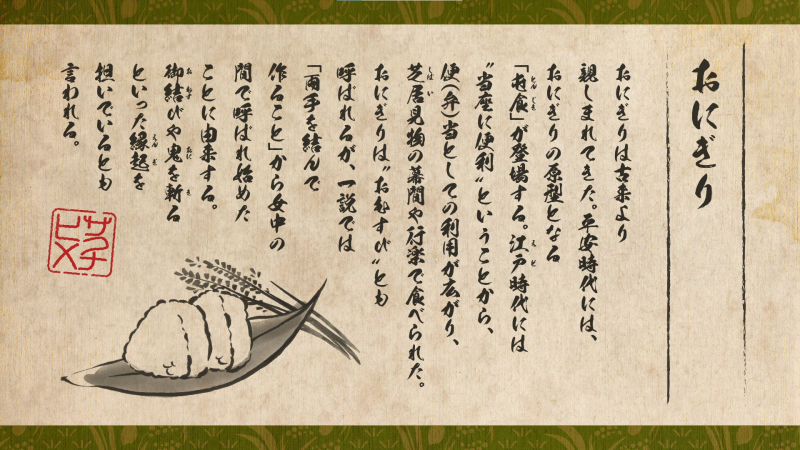 おにぎり
おにぎりは古来より
親しまれてきた。平安時代には、
おにぎりの原型となる
「屯食」が登場する。江戸時代には
〝当座に便利〟ということから、
便(弁)当としての利用が広がり、
芝居見物の幕間や行楽で食べられた。
おにぎりは〝おむすび〟とも
呼ばれるが、一説では
「両手を結んで
作ること」から女中の
間で呼ばれ始めた
ことに由来する。
御結びや鬼を斬る
といった縁起を
担いでいるとも
言われる。